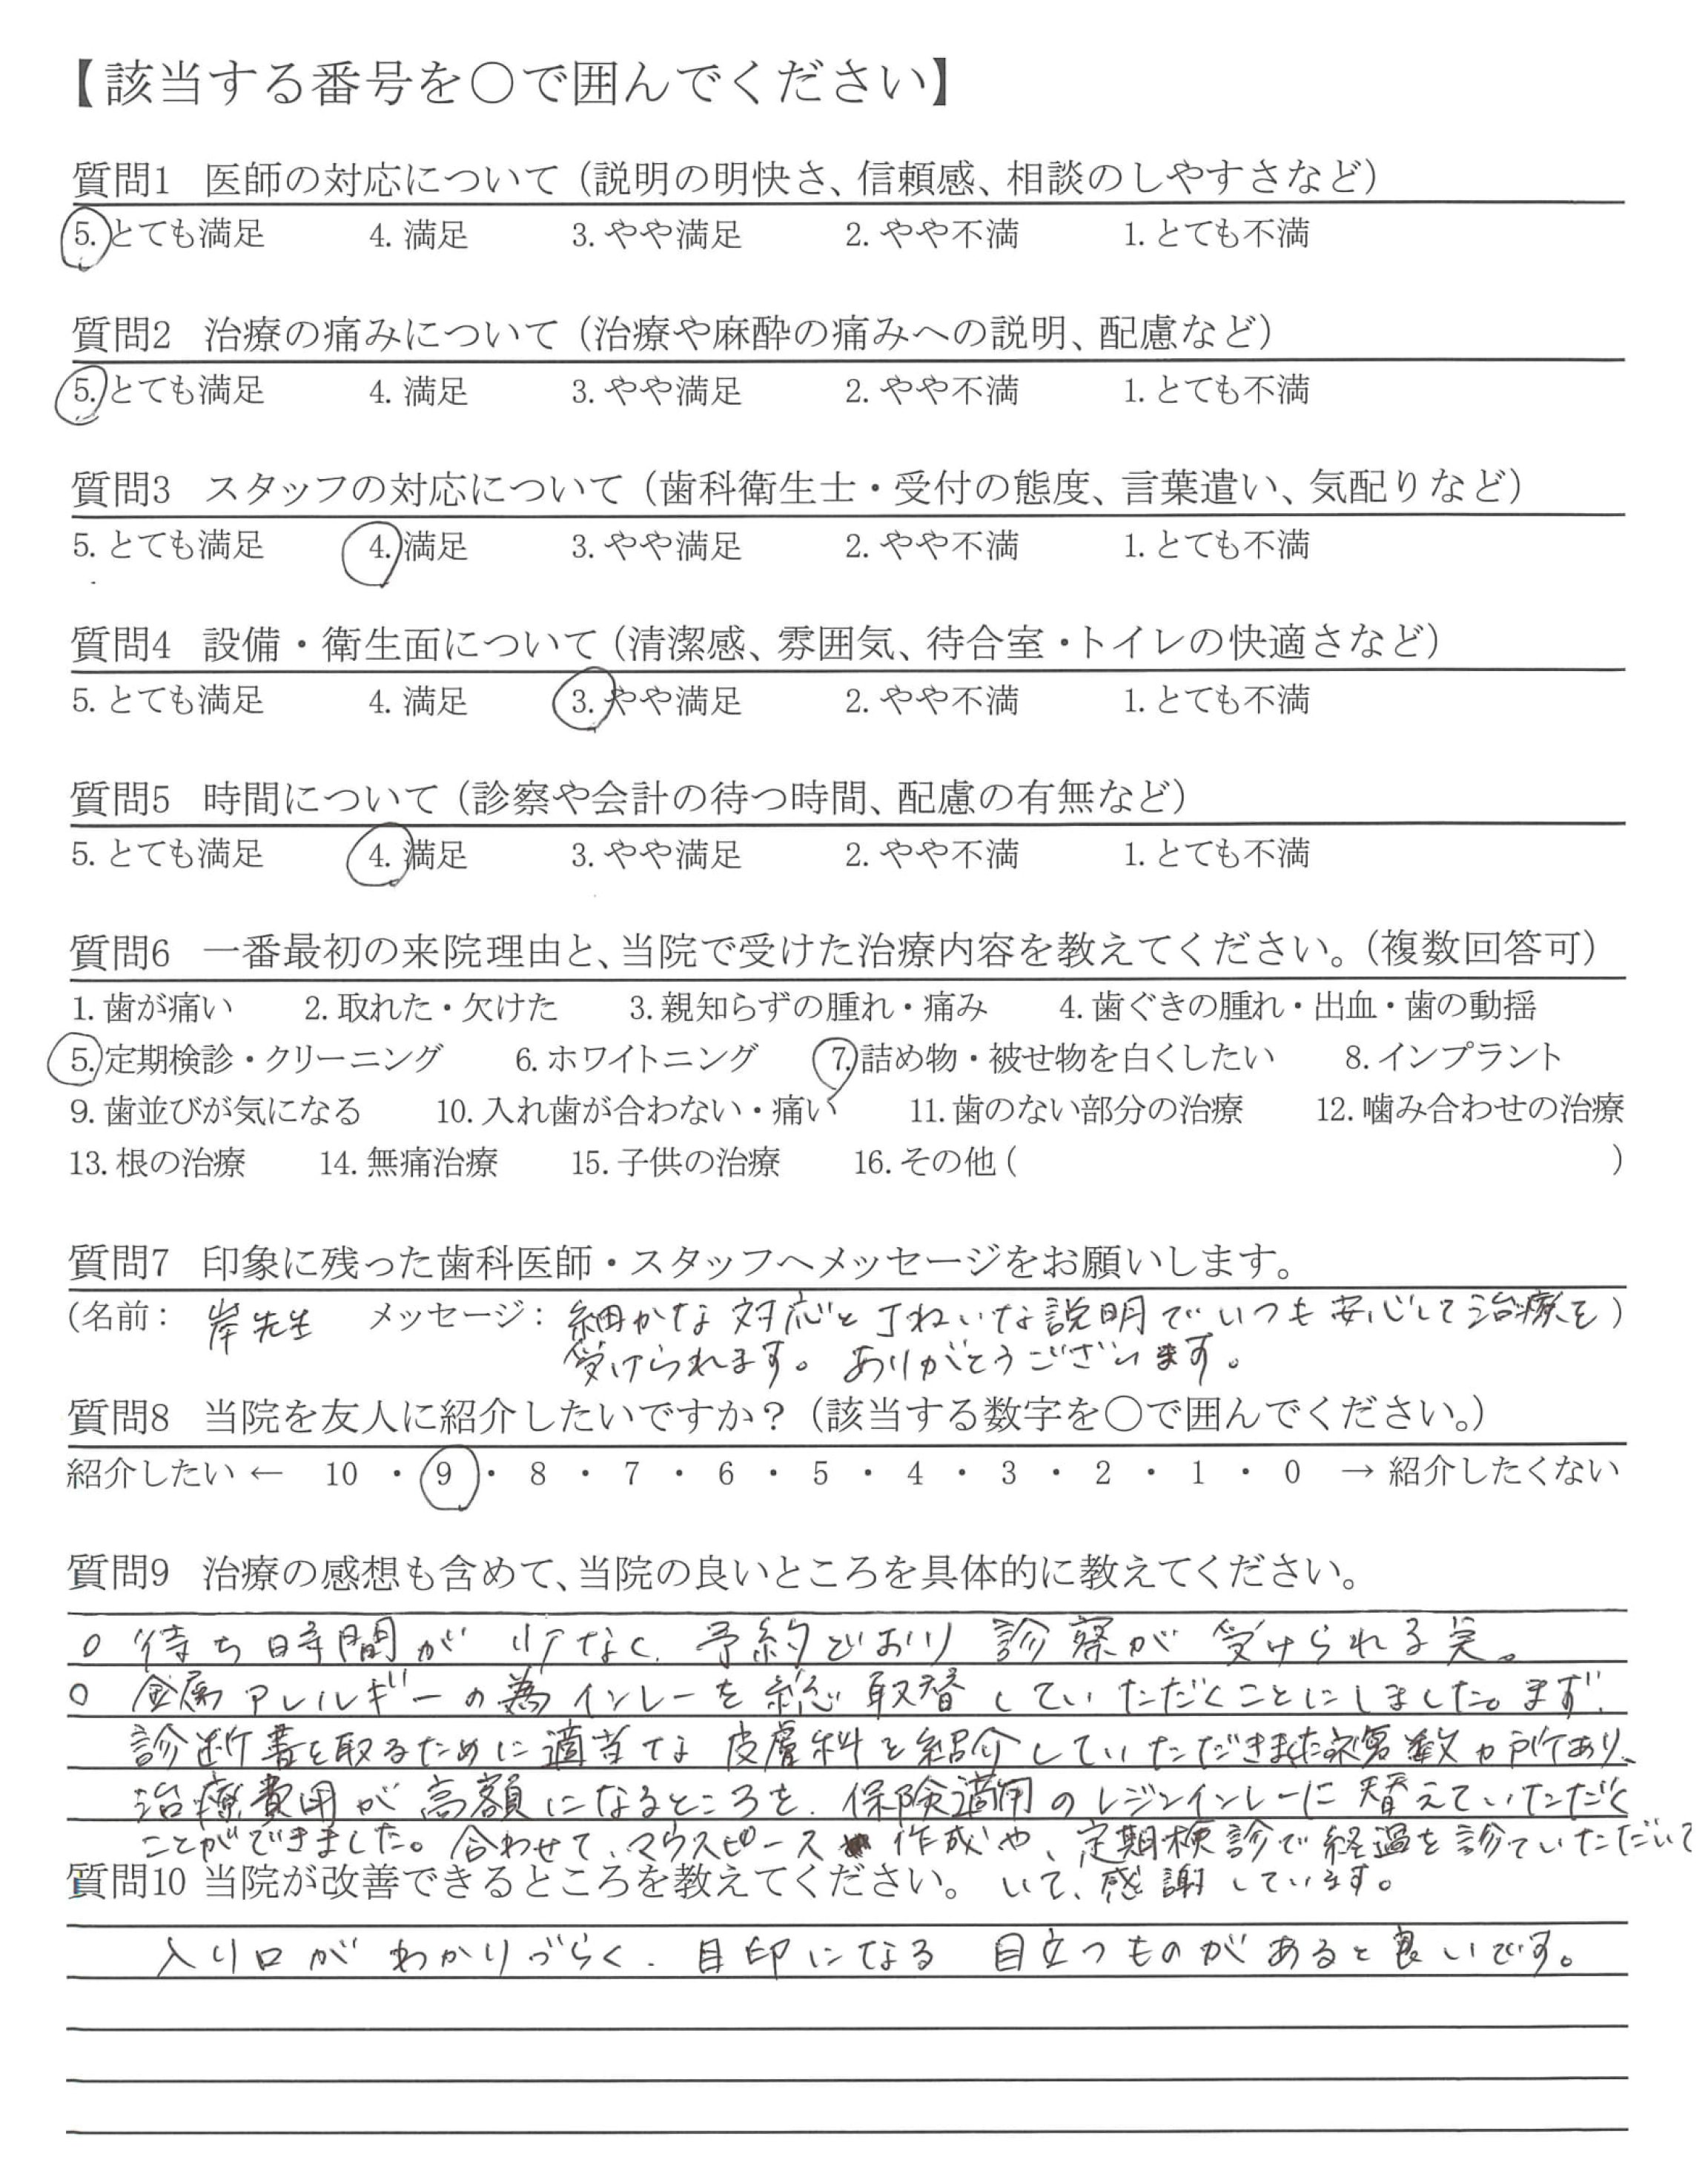 【該当する番号を○で囲んでください】
質問1 医師の対応について（説明の明快さ、信頼感、相談のしやすさなど）
5. とても満足 4. 満足 3. やや満足 2. やや不満 1. とても不満
質問2 治療の痛みについて（治療や麻酔の痛みへの説明、配慮など）
5. とても満足 4. 満足 3. やや満足 2. やや不満 1. とても不満
質問3 スタッフの対応について（歯科衛生士・受付の態度、言葉遣い、気配りなど）
5. とても満足 4. 満足 3. やや満足 2. やや不満 1. とても不満
質問4 設備・衛生面について（清潔感、雰囲気、待合室・トイレの快適さなど）
5. とても満足 4. 満足 3. やや満足 2. やや不満 1. とても不満
質問5 時間について（診察や会計の待つ時間、配慮の有無など）
5. とても満足 4. 満足 3. やや満足 2. やや不満 1. とても不満
質問6 一番最初の来院理由と、当院で受けた治療内容を教えてください。（複数回答可）
1. 歯が痛い 2. 取れた・欠けた 3. 親知らずの腫れ・痛み 4. 歯ぐきの腫れ・出血・歯の動揺
5. 定期検診・クリーニング 6. ホワイトニング 7. 詰め物・被せ物を白くしたい 8. インプラント
9. 歯並びが気になる 10. 入れ歯が合わない・痛い 11. 歯のない部分の治療 12. 噛み合わせの治療
13. 根の治療 14. 無痛治療 15. 子供の治療 16. その他（ ）
質問7 印象に残った歯科医師・スタッフへメッセージをお願いします。
（名前： 岸先生 メッセージ： 細かな対応と丁ねいな説明でいつも安心して治療を）
受けられます。ありがとうございます。
質問8 当院を友人に紹介したいですか？（該当する数字を○で囲んでください。）
紹介したい ← 10 ・ 9 ・ 8 ・ 7 ・ 6 ・ 5 ・ 4 ・ 3 ・ 2 ・ 1 ・ 0 → 紹介したくない
質問9 治療の感想も含めて、当院の良いところを具体的に教えてください。
○ 待ち時間が少なく、予約どおり診察が受けられる点。
○ 金属アレルギーの為インレーを総取替していただくことにしました。まず、
診断書を取るために適当な皮膚科を紹介していただきました。複数カ所あり、
治療費用が高額になるところを、保険適用のレジンインレーに替えていただく
ことができました。合わせて、マウスピース作成や、定期検診で経過を診ていただいて
質問10 当院が改善できるところを教えてください。 いて、感謝しています。
入り口がわかりづらく、目印になる目立つものがあると良いです。